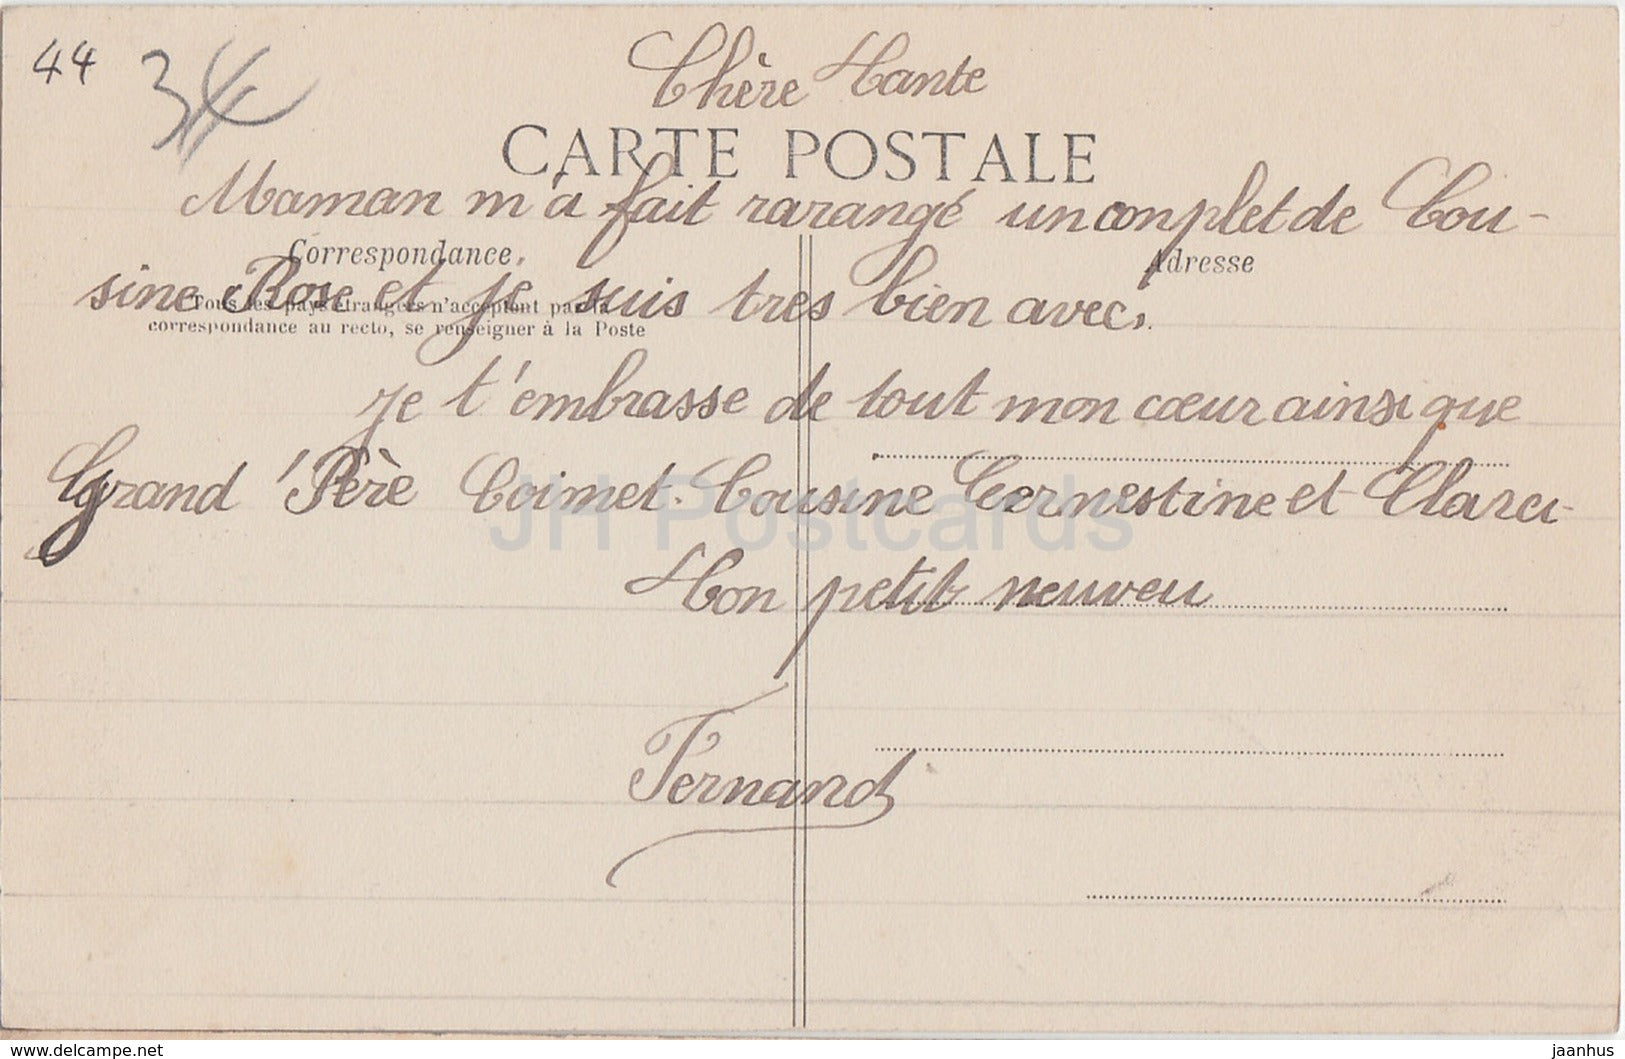 44 34
Chère Tante
CARTE POSTALE
Maman m'a fait rarangé un conplet de Cou-
Correspondance. Adresse
sine Rose et je suis tres bien avec.
Tous les pays étrangers n'acceptent pas la
correspondance au recto, se renseigner à la Poste
je t'embrasse de tout mon cœur ainsi que
Grand'Père Coimet. Cousine Ernestine et
JH Postcards
Ton petit neuveu
Fernand
www.delcampe.net
jaanhus